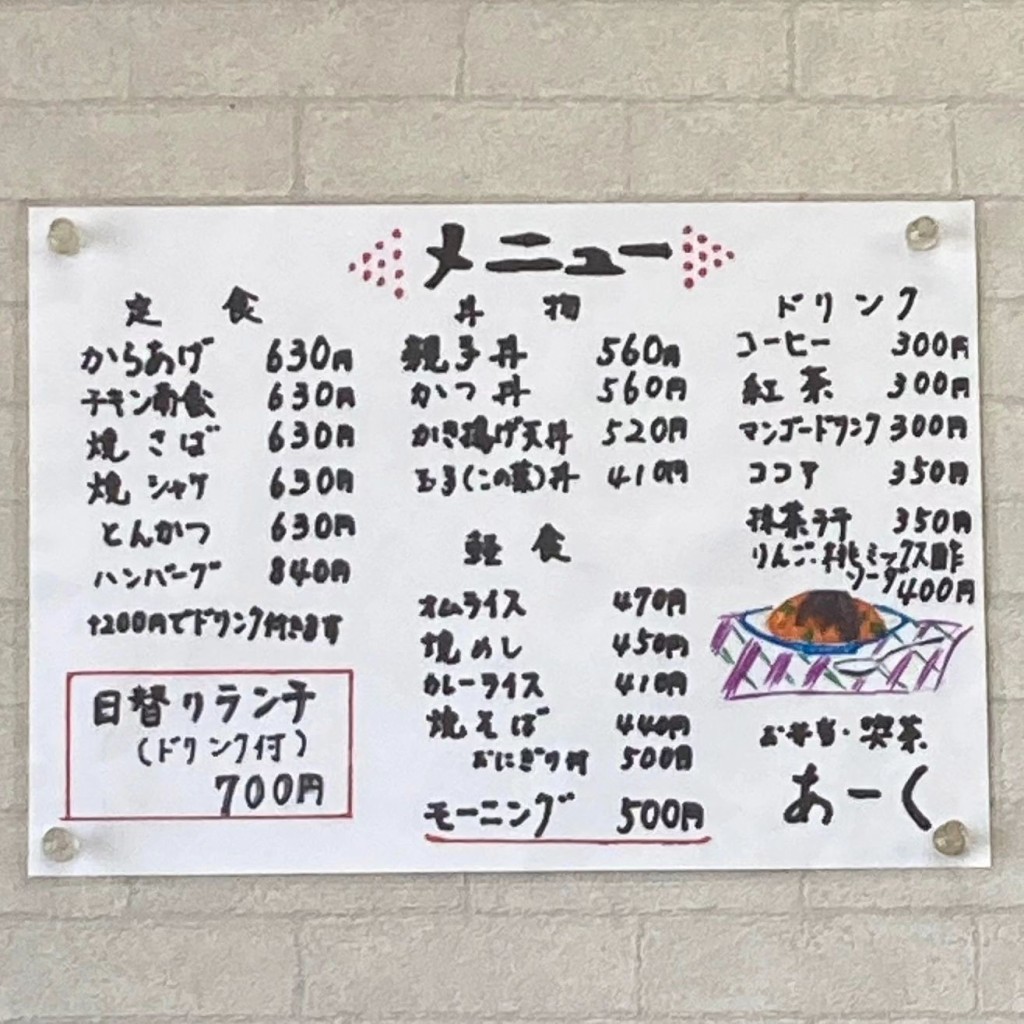 メニュー
定食
からあげ 630円
チキン南蛮 630円
焼さば 630円
焼シャケ 630円
とんかつ 630円
ハンバーグ 840円
+200円でドリンク付きます
日替りランチ
(ドリンク付)
700円
丼物
親子丼 560円
かつ丼 560円
かき揚げ天丼 520円
玉子(この葉)丼 410円
軽食
オムライス 470円
焼めし 450円
カレーライス 410円
焼そば 440円
おにぎり付 500円
モーニング 500円
ドリンク
コーヒー 300円
紅茶 300円
マンゴードリンク 300円
ココア 350円
抹茶ラテ 350円
りんご・桃ミックス酢
ソーダ 400円
お弁当・喫茶
あーく